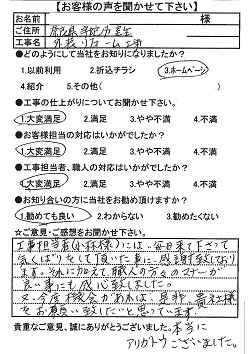 【お客様の声を聞かせて下さい】
お名前 様
ご住所 奈良県宇陀市室生
工事名 外装リフォーム工事
●どのようにして当社をお知りになりましたか?
1.以前利用 2.折込チラシ 3.ホームページ
4.紹介 5.その他( )
●工事の仕上がりについてお聞かせ下さい。
1.大変満足 2.満足 3.やや不満 4.不満
●お客様担当の対応はいかがでしたか?
1.大変満足 2.満足 3.やや不満 4.不満
●工事担当者、職人の対応はいかがでしたか?
1.大変満足 2.満足 3.やや不満 4.不満
●お知り合いの方に当社をお勧め頂けますか?
1.勧めても良い 2.わからない 3.勧めたくない
☆ご意見・ご感想をお聞かせ下さい。
工事担当者(小林様)には、毎日来て下さって
気くばりをして頂いた事に、感謝致しており
ます。それに加えて、職人の方々のマナーが
良い事にも感心致しました。
又、今度機会があれば、是非、貴社様
をお願い致したいと思っています。
貴重なご意見、誠にありがとうございました。本当に
アリガトウございました。